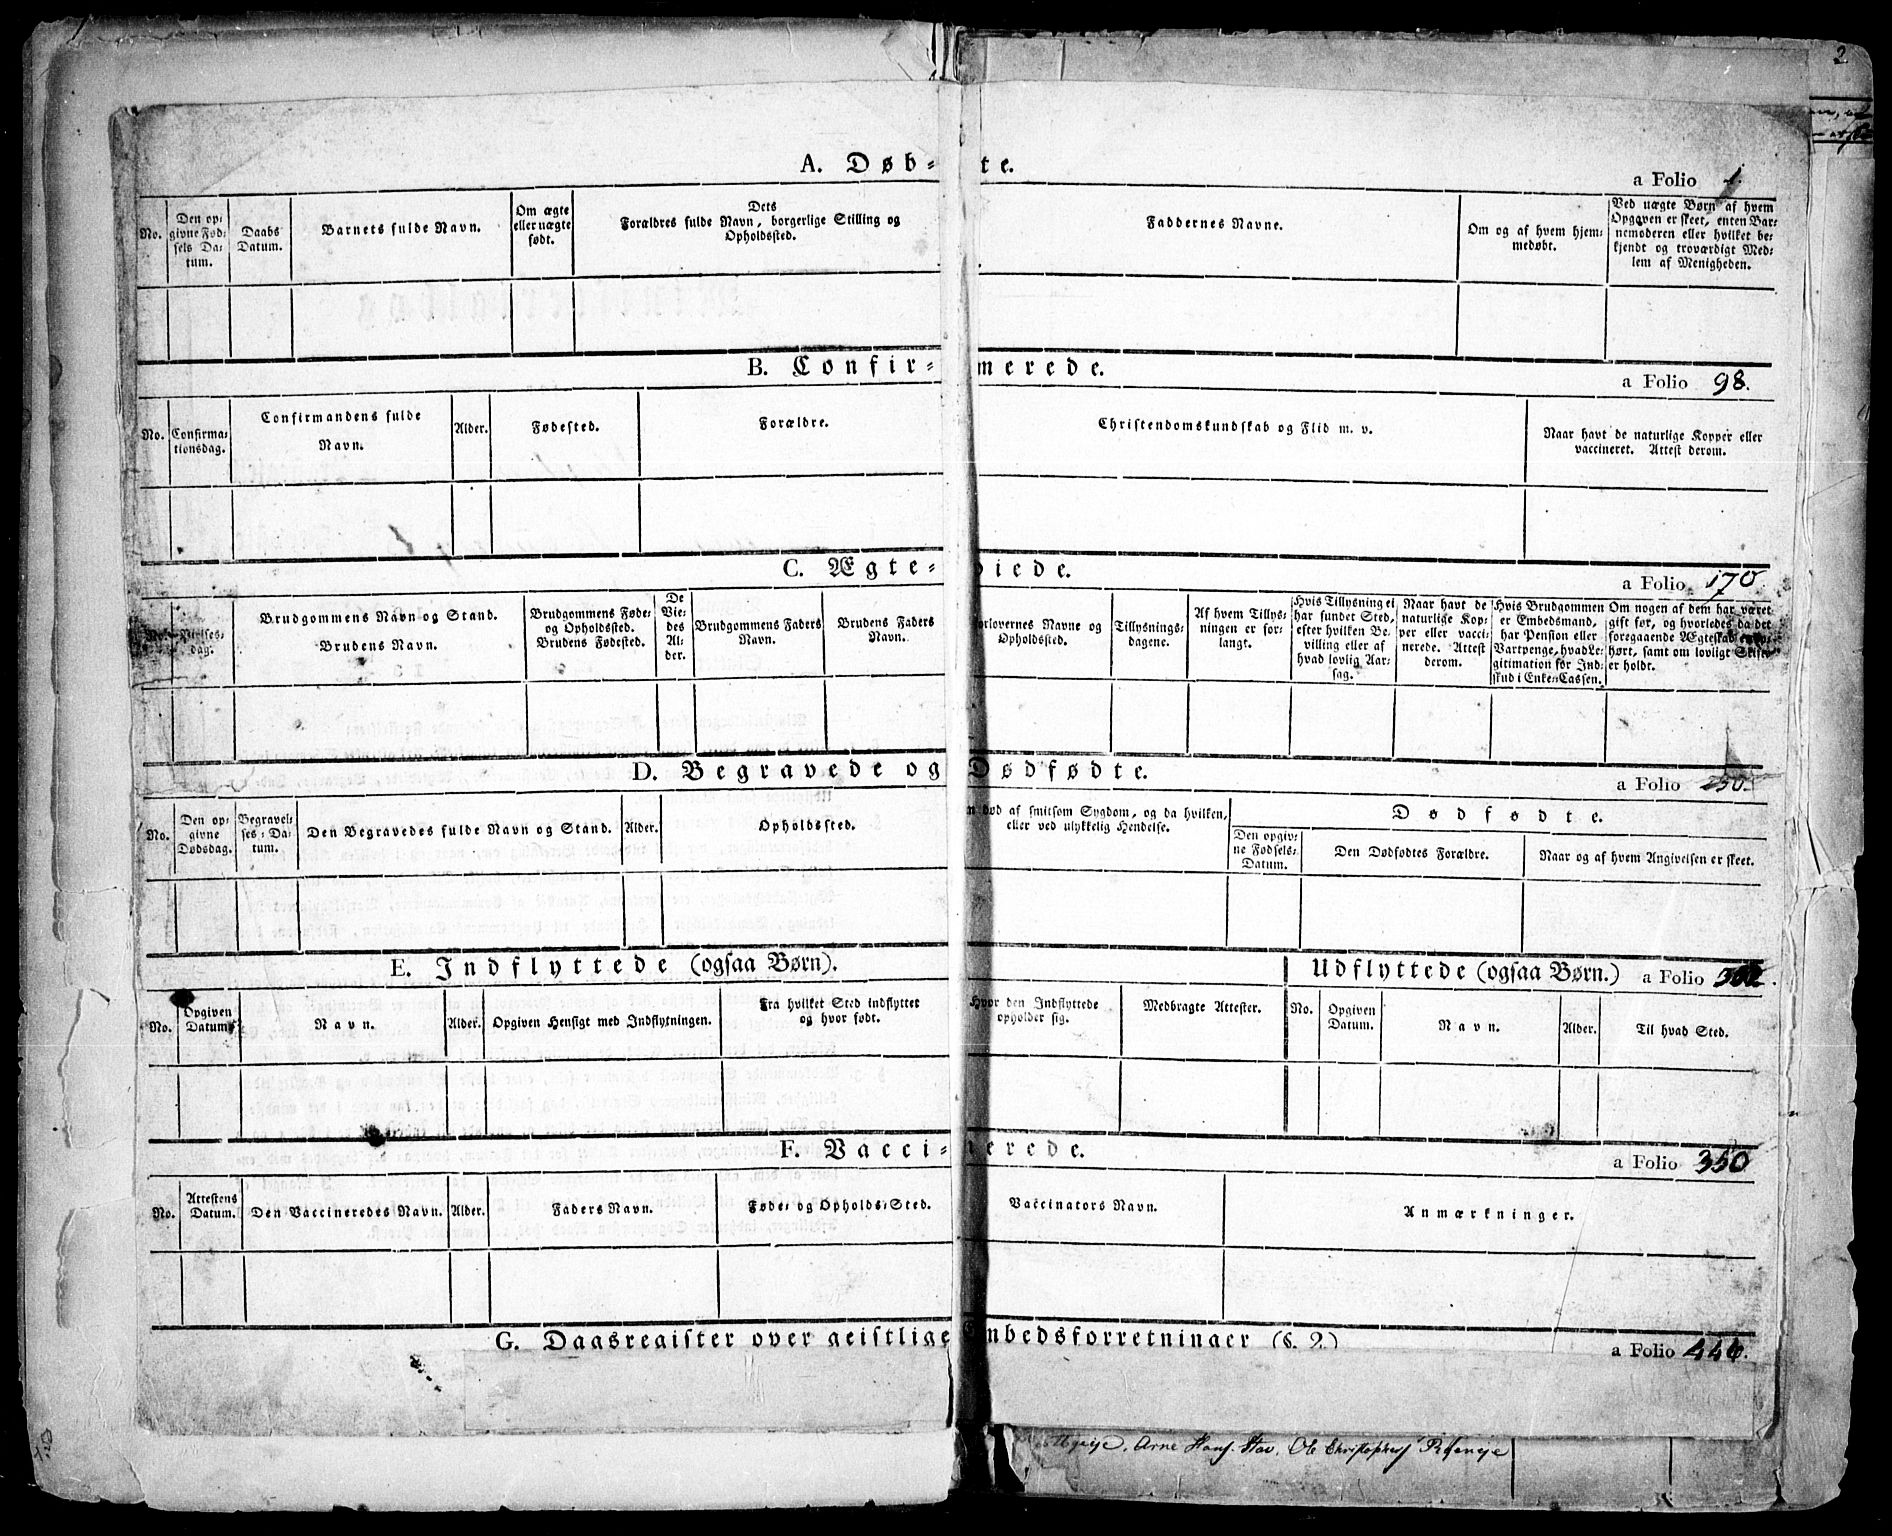 2
A. Døb- te.
a Folio 1.
No.
Den op-
givne Fød-
sels Da-
tum.
Daabs
Datum.
Barnets fulde Navn.
Om ægte
eller uægte
født.
Dets
Forældres fulde Navn, borgerlige Stilling og
Opholdssted.
Faddernes Navne.
Om og af hvem hjem-
medøbt.
Ved uægte Børn af hvem
Opgaven er skeet, enten Bar-
nemoderen eller hvilket be-
kjendt og troværdigt Med-
lem af Menigheden.
B. Confir- merede.
a Folio 98.
No.
Confirma-
tionsdag.
Confirmandens fulde
Navn.
Alder.
Fødested.
Forældre.
Christendomskundskab og Flid m. v.
Naar havt de naturlige Kopper eller
vaccineret. Attest derom.
C. Ægte- viede.
a Folio 170
No.
Vielses-
dag.
Brudgommens Navn og Stand.
Brudens Navn.
Brudgommens Føde-
og Opholdssted.
Brudens Fødested.
De
Vie-
des
Al-
der.
Brudgommens Faders
Navn.
Brudens Faders
Navn.
Forlovernes Navne og
Opholdssted.
Tillysnings-
dagene.
Af hvem Tillys-
ningen er for-
langt.
Hvis Tillysning ei
har fundet Sted,
efter hvilken Be-
villing eller af
hvad lovlig Aar-
sag.
Naar havt de
naturlige Kop-
per eller vacci-
nerede. Attest
derom.
Hvis Brudgommen
er Embedsmand,
har Pension eller
Vartpenge, hvad Le-
gitimation for Ind-
skud i Enke-Cassen.
Om nogen af dem har været
gift før, og hvorledes da det
foregaaende Ægteskab er op-
hørt, samt om lovligt Skifte
er holdt.
D. Begravede og Dødfødte.
a Folio 250.
No.
Den op-
givne
Dødsdag.
Begravel-
ses-Da-
tum.
Den Begravedes fulde Navn og Stand.
Alder.
Opholdssted.
død af smitsom Sygdom, og da hvilken,
eller ved ulykkelig Hendelse.
Dødfødte.
Den opgiv-
ne Fødsels-
Datum.
Den Dødfødtes Forældre.
Naar og af hvem Angivelsen er skeet.
E. Indflyttede (ogsaa Børn).
Udflyttede (ogsaa Børn.) a Folio 302.
No.
Opgiven
Datum
Navn.
Alder.
Opgiven Hensigt med Indflytningen.
Fra hvilket Sted indflyttet
og hvor født.
Hvor den Indflyttede
opholder sig.
Medbragte Attester.
No.
Opgiven
Datum.
Navn.
Alder.
Til hvad Sted.
F. Vacci- nerede.
a Folio 350
No.
Attestens
Datum.
Den Vaccineredes Navn.
Alder.
Faders Navn.
Føde- og Opholds-Sted.
Vaccinators Navn.
Anmærkninger.
G. Dagsregister over geistlige Embedsforretninger (§. 2.)
a Folio 446.
Arne Hans. Stav, Ole Christophers